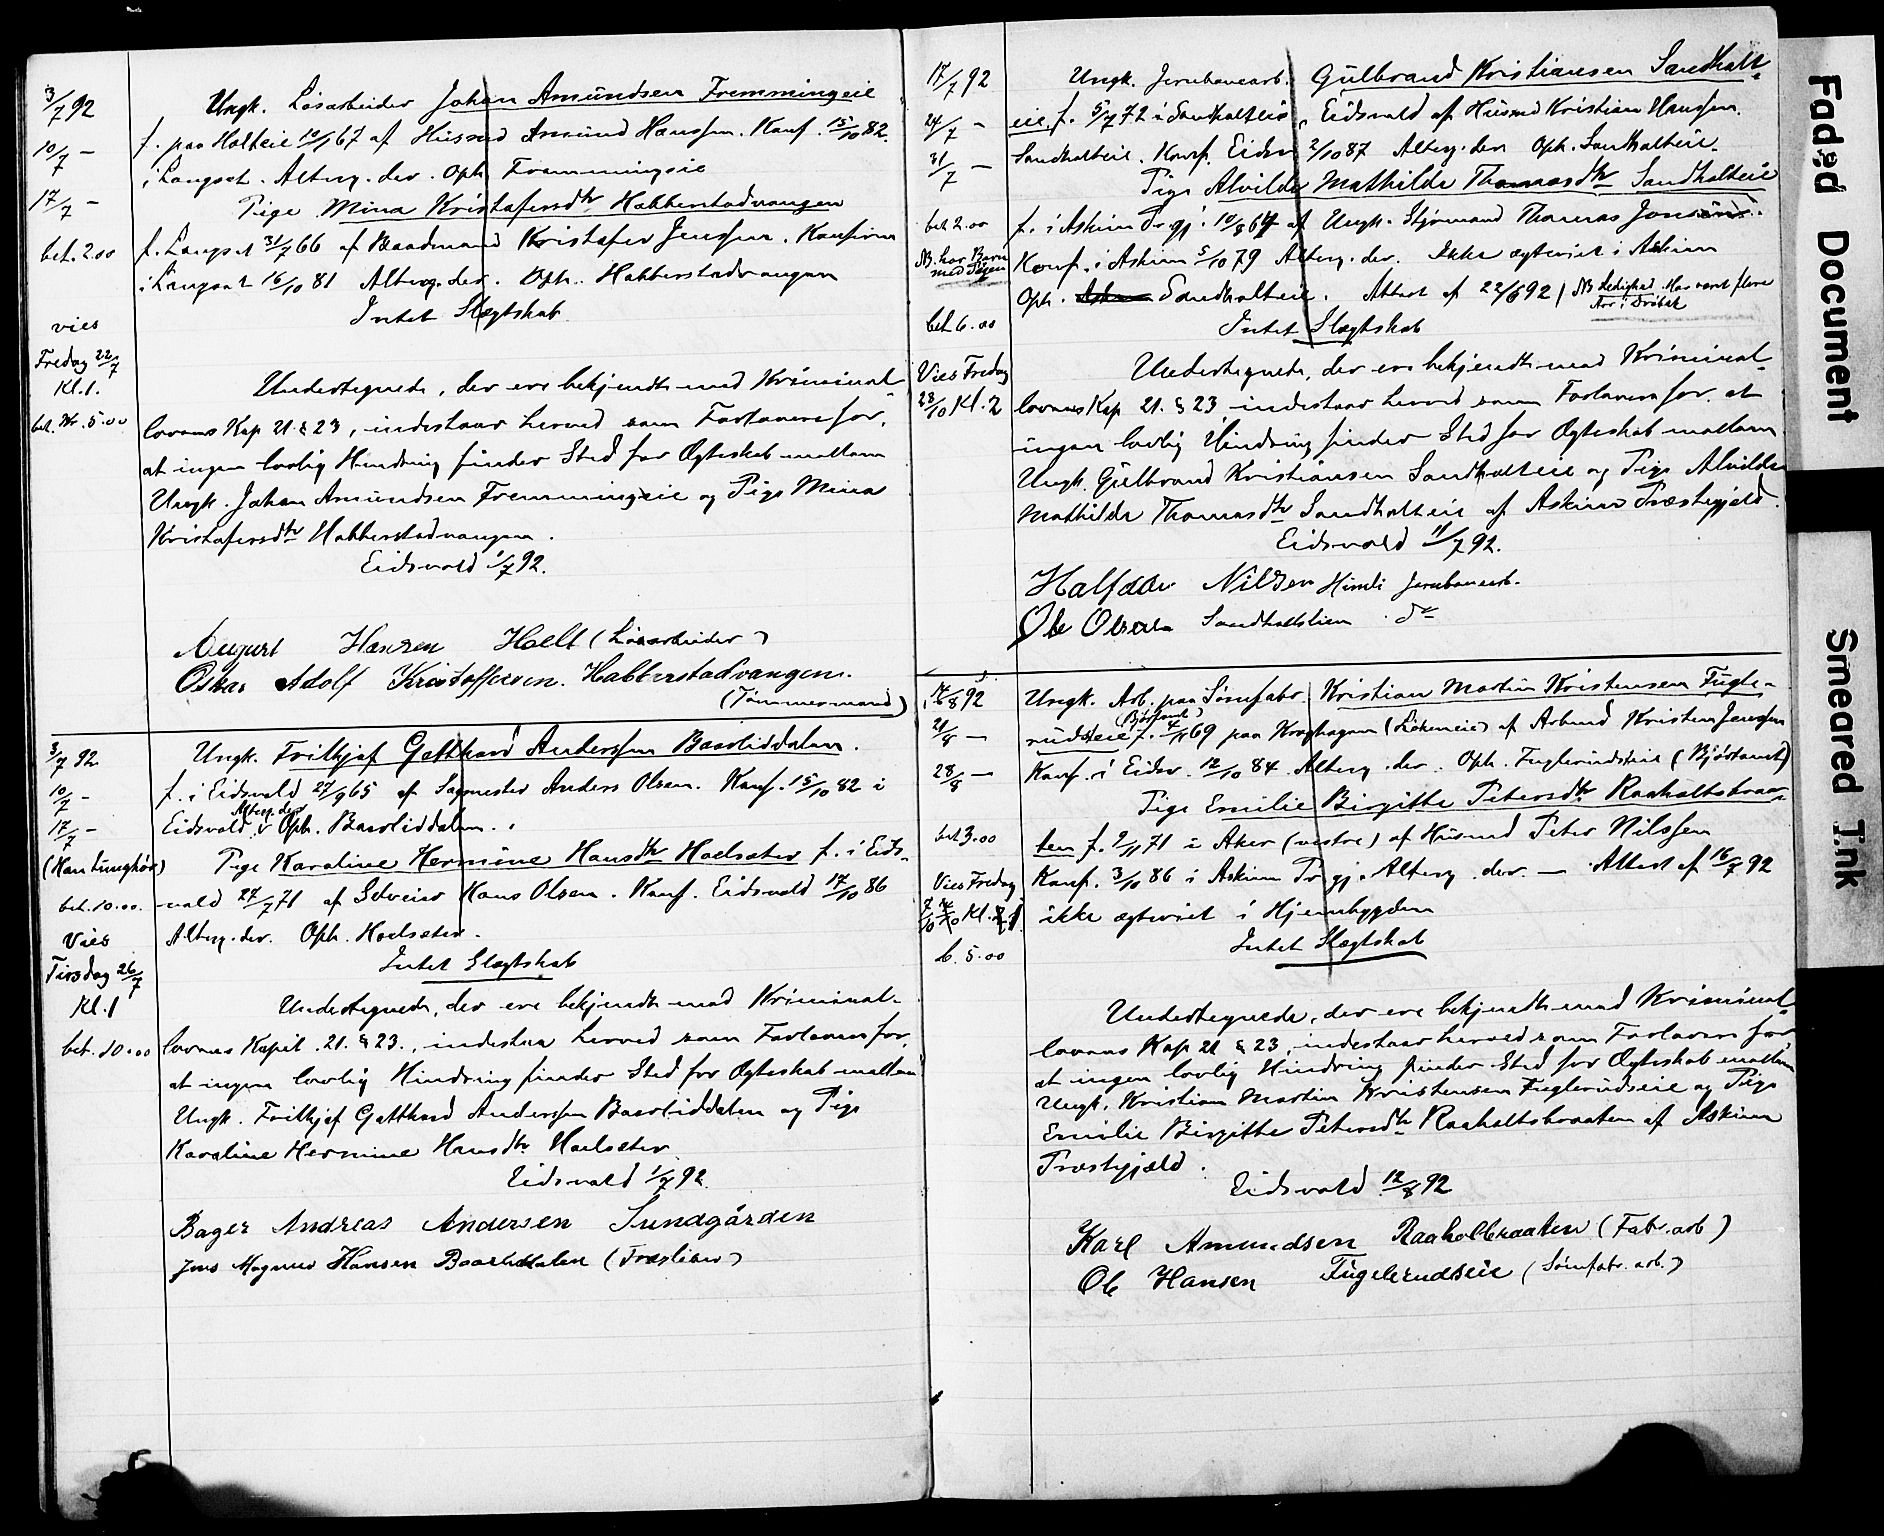 3/7 92
10/7 –
17/7 –
bet. 2.00
vies
Fredag 22/7
Kl. 1.
bet. Kr. 5.00
Ungk. Løsarbeider Johan Amundsen Fremmingeie
f. paa Holteie 10/1 67 af Husmd Amund Hanssen. Konf. 15/10 82.
i Langset. Alterg. der. Oph. Fremmingeie
Pige Mina Kristofersdtr Habberstadvangen
f. Langset 31/7 66 af Baadmand Kristofer Jenssen. Konfirm
i Langset 16/10 81 Alterg. der. Oph. Habberstadvangen
Intet Slægtskab
Undertegnede, der ere bekjendte med Kriminal-
lovens Kap 21. § 23, indestaar herved som Forlovere for,
at ingen lovlig Hindring finder Sted for Ægteskab mellem
Ungk. Johan Amundsen Fremmingeie og Pige Mina
Kristofersdtr Habberstadvangen.
Eidsvold 1/7 92.
August Hansen Holt (Løsarbeider)
Oskar Adolf Kristoffersen. Habberstadvangen.
(Tømmermand)
3/7 92
10/7 –
17/7 –
(Han tunghør)
bet. 10.00.
Vies
Tirsdag 26/7
Kl. 1
bet. 10.00
Ungk. Frithjof Gotthard Anderssen Baarliddalen.
f. i Eidsvold 27/9 65 af Sagmester Anders Olsen. Konf. 15/10 82 i
Alterg. der
Eidsvold v Oph. Baarliddalen.
Pige Karoline Hermine Hansdtr Hoelseter f. i Eids-
vold 27/7 71 af Selveier Hans Olsen. Konf. Eidsvold 17/10 86
Alterg. der. Oph. Hoelseter.
Intet Slægtskab
Undertegnede, der ere bekjendte med Kriminal-
lovens Kapit. 21. § 23., indestaa herved som Forlovere for,
at ingen lovlig Hindring finder Sted for Ægteskab mellem
Ungk. Frithjof Gotthard Anderssen Baarliddalen og Pige
Karoline Hermine Hansdtr Hoelseter
Eidsvold 1/7 92.
Bager Andreas Andersen Sundgården
Jens Magnus Hansen Baarliddalen (Træsliber)
17/7 92
24/7 –
31/7 –
bet 2.00
NB. har Barn
med Pigen
bet. 6.00
Vies Fredag
28/10 Kl. 2
Ungk. Jernbanearb. Gulbrand Kristiansen Sandholt-
eie. f. 5/7 72 i Sandholteie, Eidsvold af Husmd Kristian Hanssen.
Sandholteie. Konf. Eidsv 2/10 87 Alterg. der Oph. Sandholteie.
Pige Alvilde Mathilde Thomasdtr Sandholteie
f. i Askim Prgj. 10/8 64 af Ungk. Styrmand Thomas Jonsen.
Konf. i Askim 5/10 79 Alterg. der. Ikke ægteviet i Askim
Oph. Sandholteie. Attest af 22/6 92 | NB Ledighed. Har været flere
Aar i Drøbak
Intet Slægtskab
Undertegnede, der ere bekjendte med Kriminal-
lovens Kap 21. § 23 indestaar herved som Forlovere for, at
ingen lovlig Hindring finder Sted for Ægteskab mellem
Ungk. Gulbrand Kristiansen Sandholteie og Pige Alvilde
Mathilde Thomasdtr Sandholteie af Askim Præstegjeld.
Eidsvold 11/7 92.
Halfdan Nilsen Himli Jernbanearb.
Ole Olsen Sandholtlien. do
14/8 92
21/8 –
28/8 –
bet 3.00
Vies Fredag
7/10 Kl. 1
b. 5.00
Ungk. Arb. paa Sømfabr. Kristian Martin Kristensen Fugle-
(Bjørtomt)
rudseie f. 4/11 69 paa Kraphagen (Løkeneie) af Arbmd Kristen Jenssen
Konf. i Eidsv. 12/10 84. Alterg. der. Oph. Fuglerudseie (Bjørtomt)
Pige Emilie Birgitte Petersdtr Raaholtsbraa-
ten f. 9/11 71 i Aker (vestre) af Husmd Peter Nilssen
Konf. 3/10 86 i Askim Prgj. Alterg. der. – Attest af 16/7 92
ikke ægteviet i Hjembygden
Intet Slægtskab
Undertegnede, der ere bekjendte med Kriminal-
lovens Kap 21 § 23, indestaar herved som Forlovere for
at ingen lovlig Hindring finder Sted for Ægteskab mellem
Ungk. Kristian Martin Kristensen Fuglerudseie og Pige
Emilie Birgitte Petersdtr Raaholtsbraaten af Askim
Præstegjeld.
Eidsvold 12/8 92
Karl Amundsen Raaholtbraaten (Fabr. arb)
Ole Hansen Fuglerudseie (Sømfabr. arb.)
Faded Document
Smeared Ink